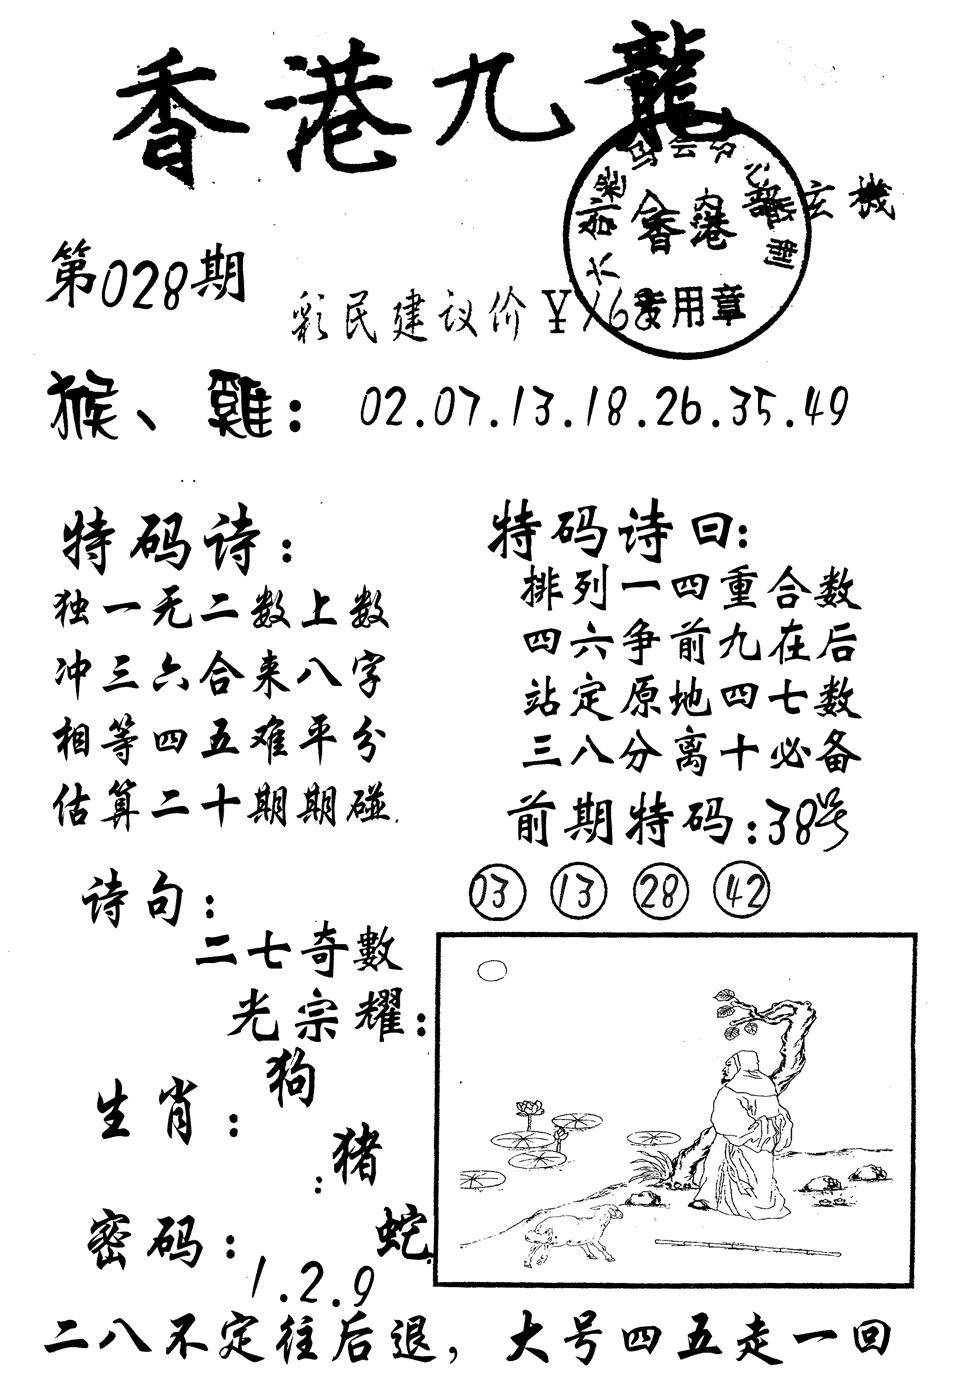 香港九龍
玄機
香港
专用章
第028期
彩民建议价￥168
猴、雞：02.07.13.18.26.35.49
特码诗：
独一无二数上数
冲三六合来八字
相等四五难平分
估算二十期期碰
特码诗曰：
排列一四重合数
四六争前九在后
站定原地四七数
三八分离十必备
前期特码：38号
03 13 28 42
诗句：
二七奇數
光宗耀：
生肖：
狗
猪
蛇
密码：
1.2.9
二八不定往后退，大号四五走一回